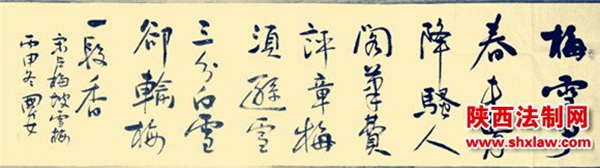 梅雪争
春未肯
降騷人
閣筆費
評章梅
須遜雪
三分白雪
卻輸梅
一段香
宋卢梅坡雪梅
丙申冬
陕西法制网
www.shxlaw.com